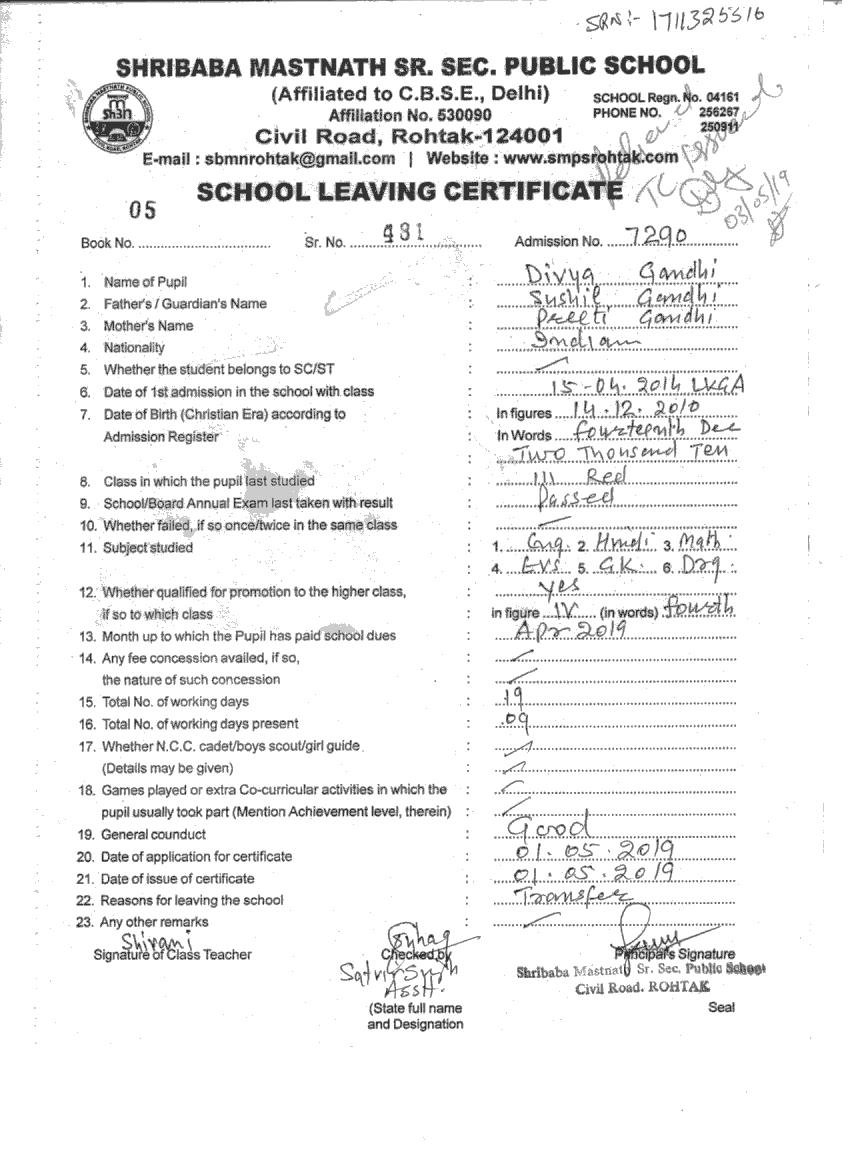 SRN:- 1711325516
SHRIBABA MASTNATH SR. SEC. PUBLIC SCHOOL
(Affiliated to C.B.S.E., Delhi)
Affiliation No. 530090
SCHOOL Regn. No. 04161
PHONE NO. 256267
250911
Civil Road, Rohtak-124001
E-mail : sbmnrohtak@gmail.com | Website : www.smpsrohtak.com
SCHOOL LEAVING CERTIFICATE
TC
03/05/19
Book No. 05 Sr. No. 481 Admission No. 7290
1. Name of Pupil : Divya Gandhi
2. Father's / Guardian's Name : Sushil Gandhi
3. Mother's Name : Preeti Gandhi
4. Nationality : Indian
5. Whether the student belongs to SC/ST :
6. Date of 1st admission in the school with class : 15-04.2014 LKGA
7. Date of Birth (Christian Era) according to : In figures 14.12.2010
Admission Register In Words fourteenth Dec
: Two Thousand Ten
8. Class in which the pupil last studied : III Red
9. School/Board Annual Exam last taken with result : Passed
10. Whether failed, if so once/twice in the same class :
11. Subject studied : 1. Eng. 2. Hindi 3. Math
4. EVS 5. G.K. 6. Drg.
12. Whether qualified for promotion to the higher class, : yes
if so to which class in figure IV (in words) fourth
13. Month up to which the Pupil has paid school dues : Apr 2019
14. Any fee concession availed, if so, :
the nature of such concession :
15. Total No. of working days : 19
16. Total No. of working days present : 09
17. Whether N.C.C. cadet/boys scout/girl guide :
(Details may be given) :
18. Games played or extra Co-curricular activities in which the :
pupil usually took part (Mention Achievement level, therein) :
19. General counduct : Good
20. Date of application for certificate : 01.05.2019
21. Date of issue of certificate : 01.05.2019
22. Reasons for leaving the school : Transfer
23. Any other remarks :
Shivani
Signature of Class Teacher
Checked by
Asstt.
(State full name
and Designation
Principal's Signature
Shribaba Mastnath Sr. Sec. Public School
Civil Road. ROHTAK
Seal